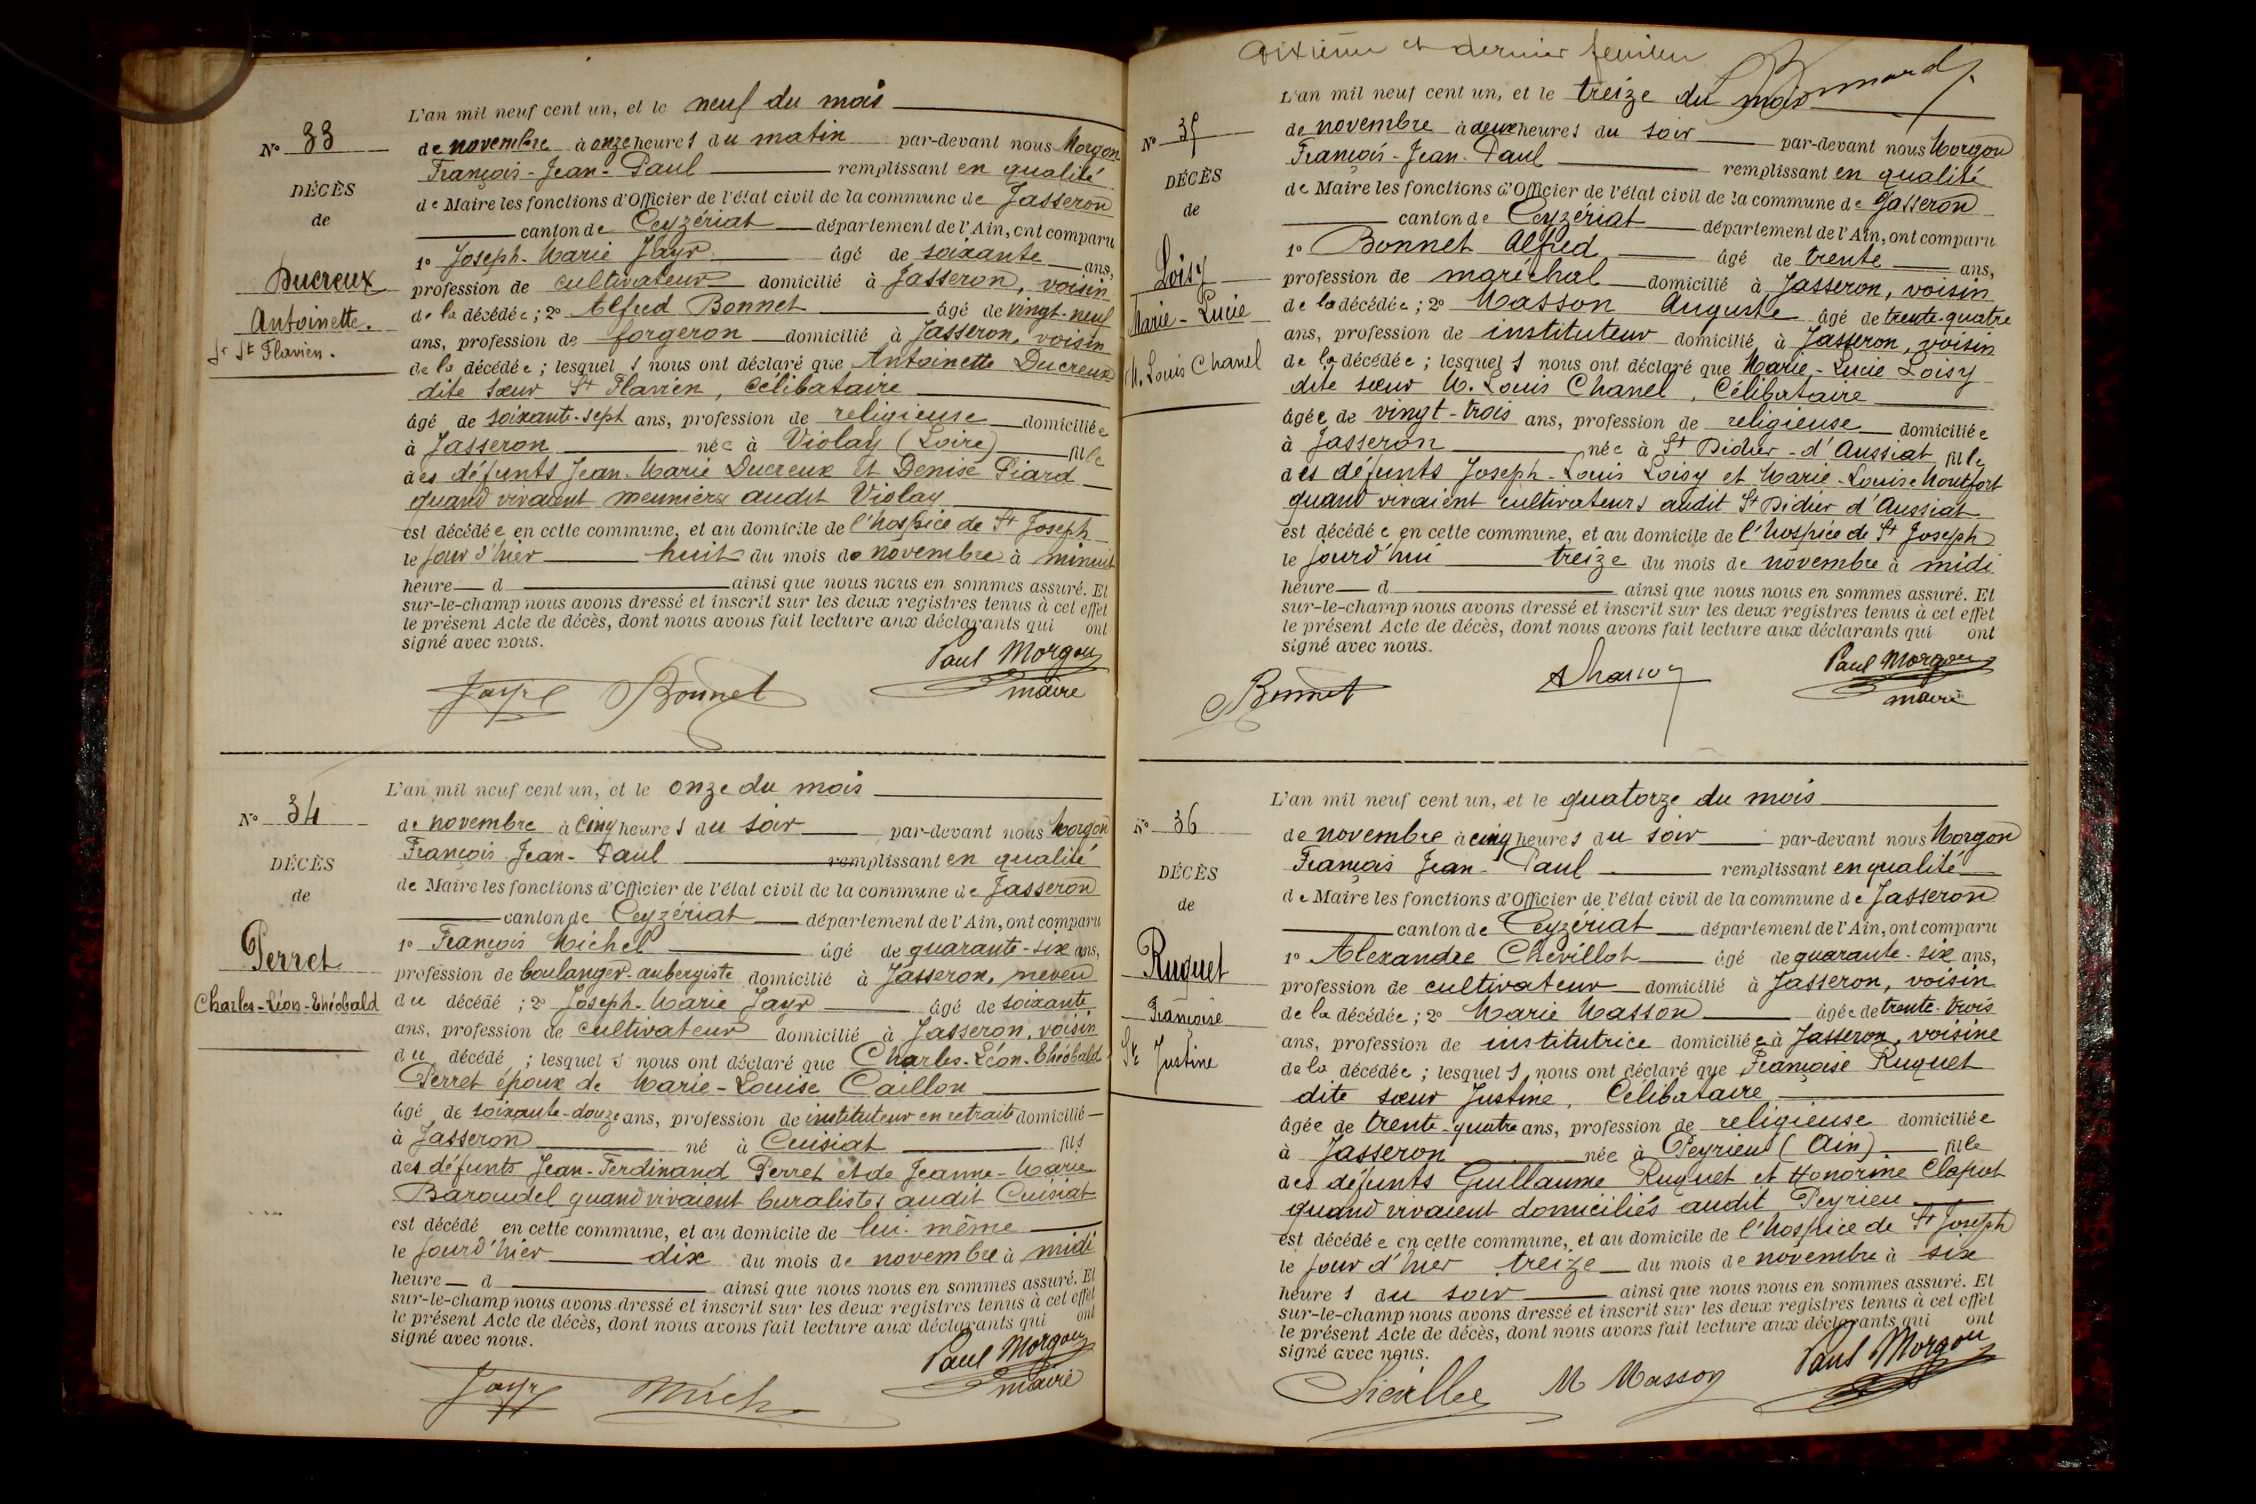 L'an mil neuf cent un, et le neuf du mois
No 33
de novembre à onze heures du matin par-devant nous Morgon
François-Jean-Paul remplissant en qualité
DÉCÈS
de Maire les fonctions d'Officier de l'état civil de la commune de Jasseron
de
canton de Ceyzériat département de l'Ain, ont comparu
1o Joseph-Marie Jayr âgé de soixante ans,
Ducreux
profession de cultivateur domicilié à Jasseron, voisin
de la décédée; 2o Alfred Bonnet âgé de vingt-neuf
Antoinette.
ans, profession de forgeron domicilié à Jasseron, voisin
Sr St Flavien.
de la décédée; lesquels nous ont déclaré que Antoinette Ducreux
dite sœur St Flavien, célibataire
âgé de soixante-sept ans, profession de religieuse domiciliée
à Jasseron née à Violay (Loire) fille
des défunts Jean-Marie Ducreux et Denise Piard
quand vivaient meuniers audit Violay
est décédée en cette commune, et au domicile de l'hospice de St Joseph
le jour d'hier huit du mois de novembre à minuit
heure d ainsi que nous nous en sommes assuré. Et
sur-le-champ nous avons dressé et inscrit sur les deux registres tenus à cet effet
le présent Acte de décès, dont nous avons fait lecture aux déclarants qui ont
signé avec nous.
Paul Morgon
maire
Jayr Bonnet
L'an mil neuf cent un, et le onze du mois
No 34
de novembre à cinq heures du soir par-devant nous Morgon
François Jean-Paul remplissant en qualité
DÉCÈS
de Maire les fonctions d'Officier de l'état civil de la commune de Jasseron
de
canton de Ceyzériat département de l'Ain, ont comparu
1o François Michel âgé de quarante-six ans,
Perret
profession de boulanger-aubergiste domicilié à Jasseron, neveu
Charles-Léon-Théobald
du décédé; 2o Joseph-Marie Jayr âgé de soixante
ans, profession de cultivateur domicilié à Jasseron, voisin
du décédé; lesquels nous ont déclaré que Charles-Léon-Théobald
Perret époux de Marie-Louise Caillon
âgé de soixante-douze ans, profession de instituteur en retraite domicilié
à Jasseron né à Cuisiat fils
des défunts Jean-Ferdinand Perret et de Jeanne-Marie
Baroudel quand vivaient buralistes audit Cuisiat
est décédé en cette commune, et au domicile de lui-même
le jourd'hier dix du mois de novembre à midi
heure d ainsi que nous nous en sommes assuré. Et
sur-le-champ nous avons dressé et inscrit sur les deux registres tenus à cet effet
le présent Acte de décès, dont nous avons fait lecture aux déclarants qui ont
signé avec nous.
Paul Morgon
maire
Jayr Mich
dixième et dernier feuillet
L'an mil neuf cent un, et le treize du mois
No 35
de novembre à deux heures du soir par-devant nous Morgon
François-Jean-Paul remplissant en qualité
DÉCÈS
de Maire les fonctions d'Officier de l'état civil de la commune de Jasseron
de
canton de Ceyzériat département de l'Ain, ont comparu
1o Bonnet Alfred âgé de trente ans,
Loisy
profession de maréchal domicilié à Jasseron, voisin
Marie-Lucie
de la décédée; 2o Masson Auguste âgé de trente-quatre
ans, profession de instituteur domicilié à Jasseron, voisin
M. Louis Chanel
de la décédée; lesquels nous ont déclaré que Marie-Lucie Loisy
dite sœur M. Louis Chanel, Célibataire
âgée de vingt-trois ans, profession de religieuse domiciliée
à Jasseron née à St Didier-d'Aussiat fille
des défunts Joseph-Louis Loisy et Marie-Louise Montfort
quand vivaient cultivateurs audit St Didier d'Aussiat
est décédée en cette commune, et au domicile de l'hospice de St Joseph
le jourd'hui treize du mois de novembre à midi
heure d ainsi que nous nous en sommes assuré. Et
sur-le-champ nous avons dressé et inscrit sur les deux registres tenus à cet effet
le présent Acte de décès, dont nous avons fait lecture aux déclarants qui ont
signé avec nous.
Paul Morgon
maire
Bonnet A Masson
L'an mil neuf cent un, et le quatorze du mois
No 36
de novembre à cinq heures du soir par-devant nous Morgon
François Jean-Paul remplissant en qualité
DÉCÈS
de Maire les fonctions d'Officier de l'état civil de la commune de Jasseron
de
canton de Ceyzériat département de l'Ain, ont comparu
1o Alexandre Chevillot âgé de quarante-six ans,
Ruguet
profession de cultivateur domicilié à Jasseron, voisin
Françoise
de la décédée; 2o Marie Masson âgée de trente-trois
ans, profession de institutrice domiciliée à Jasseron, voisine
Sr Justine
de la décédée; lesquels nous ont déclaré que Françoise Ruguet
dite sœur Justine, Célibataire
âgée de trente-quatre ans, profession de religieuse domiciliée
à Jasseron née à Peyrieu (Ain) fille
des défunts Guillaume Ruguet et Honorine Clapot
quand vivaient domiciliés audit Peyrieu
est décédée en cette commune, et au domicile de l'hospice de St Joseph
le jour d'hier treize du mois de novembre à six
heures du soir ainsi que nous nous en sommes assuré. Et
sur-le-champ nous avons dressé et inscrit sur les deux registres tenus à cet effet
le présent Acte de décès, dont nous avons fait lecture aux déclarants qui ont
signé avec nous.
Paul Morgon
M Masson